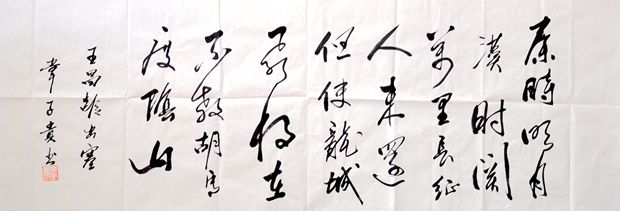 秦時明月
漢時關
萬里長征
人未還
但使龍城
飛將在
不教胡馬
度陰山
王昌齡出塞
子貴书